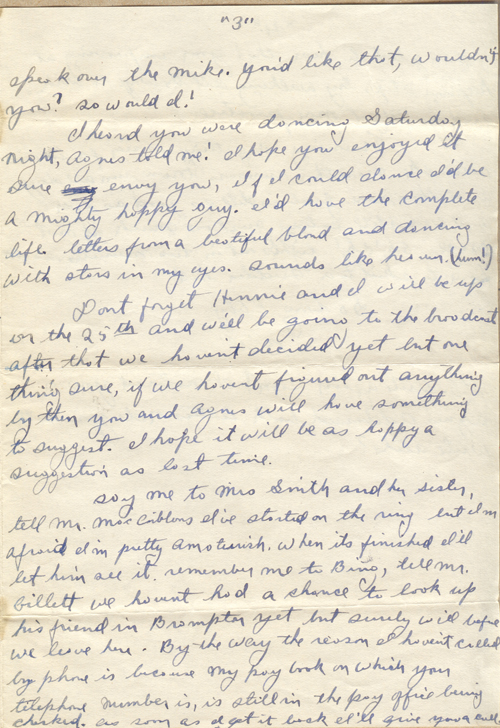 "3"
speak over the mike. you'd like that, wouldn't
you? so would I!
I heard you were dancing Saturday
night, Agnes told me! I hope you enjoyed it
sure envy you, if I could dance I'd be
a mighty happy guy. I'd have the complete
life. letters from a beatiful blond and dancing
with stars in my eyes. sounds like heaven. (hum!)
Dont forget Hinnie and I will be up
on the 25th and we'll be going to the broadcast
after that we havent decided yet but one
thing sure, if we havent figured out anything
by then you and Agnes will have something
to suggest. I hope it will be as happy a
suggestion as last time.
say me to Mrs Smith and her sister,
tell Mr. MacCibbons I've started on the ring but I'm
afraid I'm pretty amaturish. when its finished I'll
let him see it. remember me to Bing, tell Mr.
Gillett we havent had a chance to look up
his friend in Brompton yet but surely will before
we leave here. By the way the reason I havent called
by phone is because my pay book on which you
telephone number is, is still in the pay office being
checked. as soon as I get it back I'll give you a